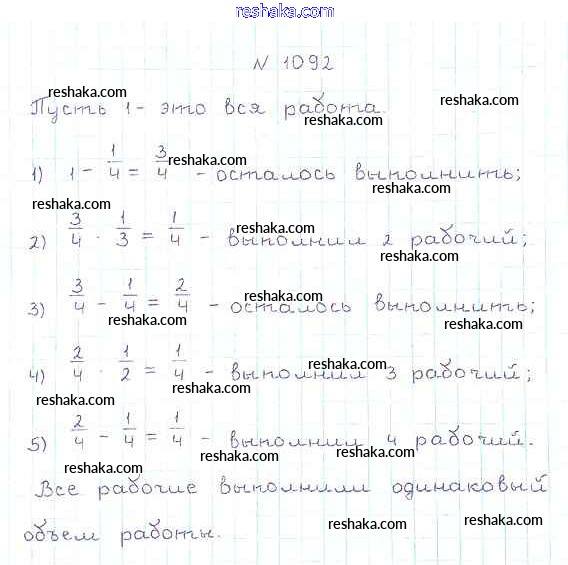 reshaka.com
N 1092
reshaka.com reshaka.com
Пусть 1 - это вся работа.
reshaka.com
1) 1 - 1/4 = 3/4 - осталось выполнить;
reshaka.com
reshaka.com
reshaka.com
2) 3/4 · 1/3 = 1/4 - выполнил 2 рабочий;
reshaka.com
reshaka.com
3) 3/4 - 1/4 = 2/4 - осталось выполнить;
reshaka.com
reshaka.com
reshaka.com
4) 2/4 · 1/2 = 1/4 - выполнил 3 рабочий;
reshaka.com
reshaka.com
reshaka.com
5) 2/4 - 1/4 = 1/4 - выполнил 4 рабочий.
reshaka.com
reshaka.com
reshaka.com
Все рабочие выполнили одинаковый
reshaka.com
объем работы.
reshaka.com